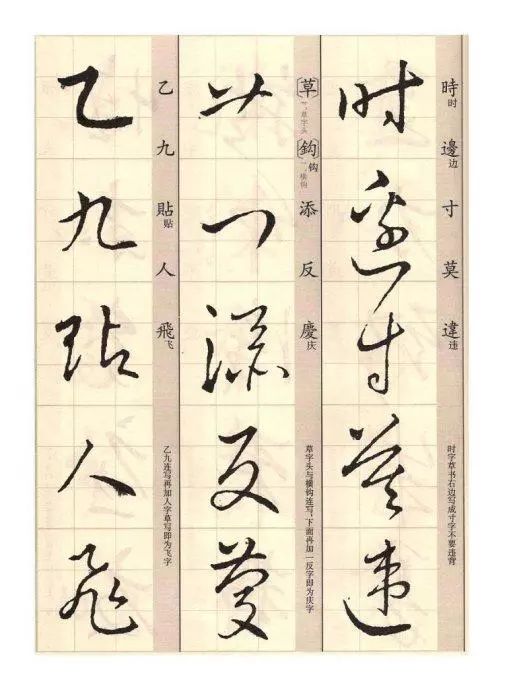 时边寸莫违
時时 邊边 寸 莫 違违
时字草书右边写成寸字不要违背
艹乛添反庆
〔草〕艹，草字头 〔鈎〕钩 乛，横钩 添 反 慶庆
草字头与横钩连写，下面再加一反字即为庆字
乙九贴人飞
乙 九 貼贴 人 飛飞
乙九连写再加人字草写即为飞字